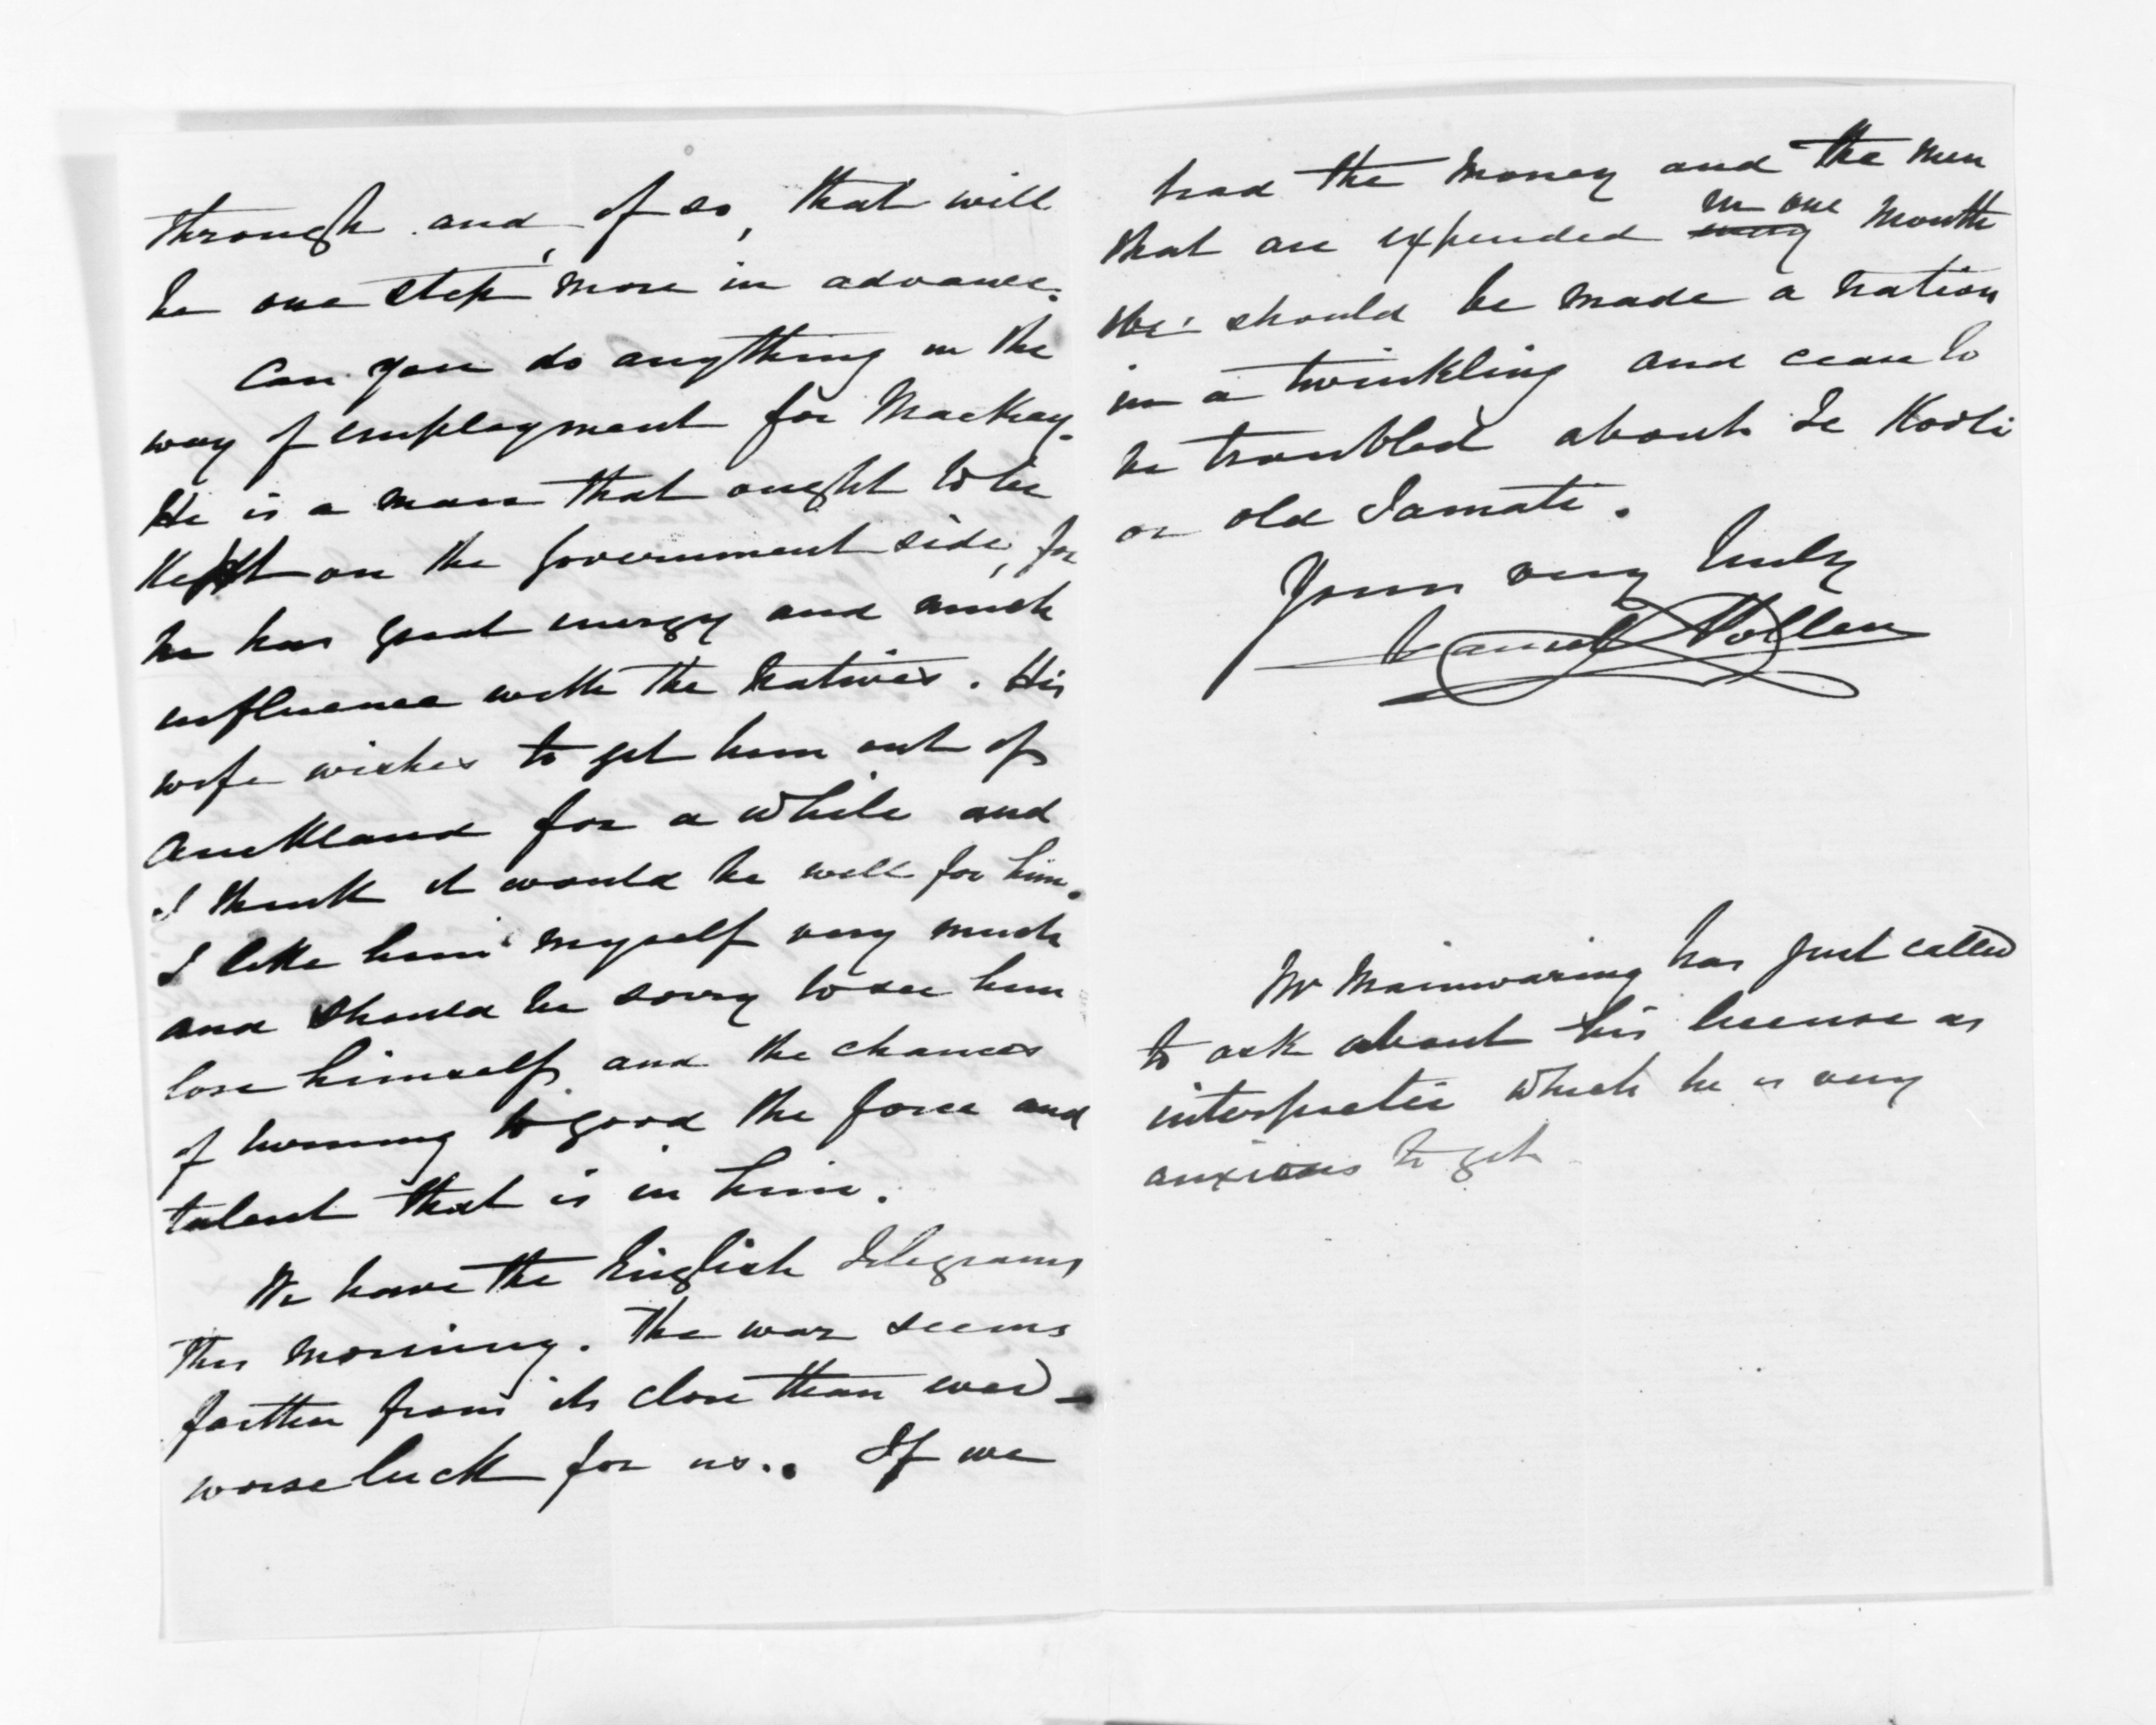 through and, if so, that will
be one step more in advance.
Can you do anything in the
way of employment for Mackay.
He is a man that ought to be
kept on the Government side, for
he has great energy and much
influence with the Natives. His
wife wishes to get him out of
Auckland for a while and
I think it would be well for him.
I like him myself very much
and should be sorry to see him
lose himself and the chances
of turning to good the force and
talent that is in him.
We have the English Telegrams
this morning. The war seems
farther from its close than ever -
worse luck for us.. If we
had the money and the men
that are expended in one month
We should be made a nation
in a twinkling and cease to
be troubled about Te Kooti
or old Tamati.
Yours very truly
Daniel Pollen
Mr Mainwaring has just called
to ask about his license as
interpreter which he is very
anxious to get